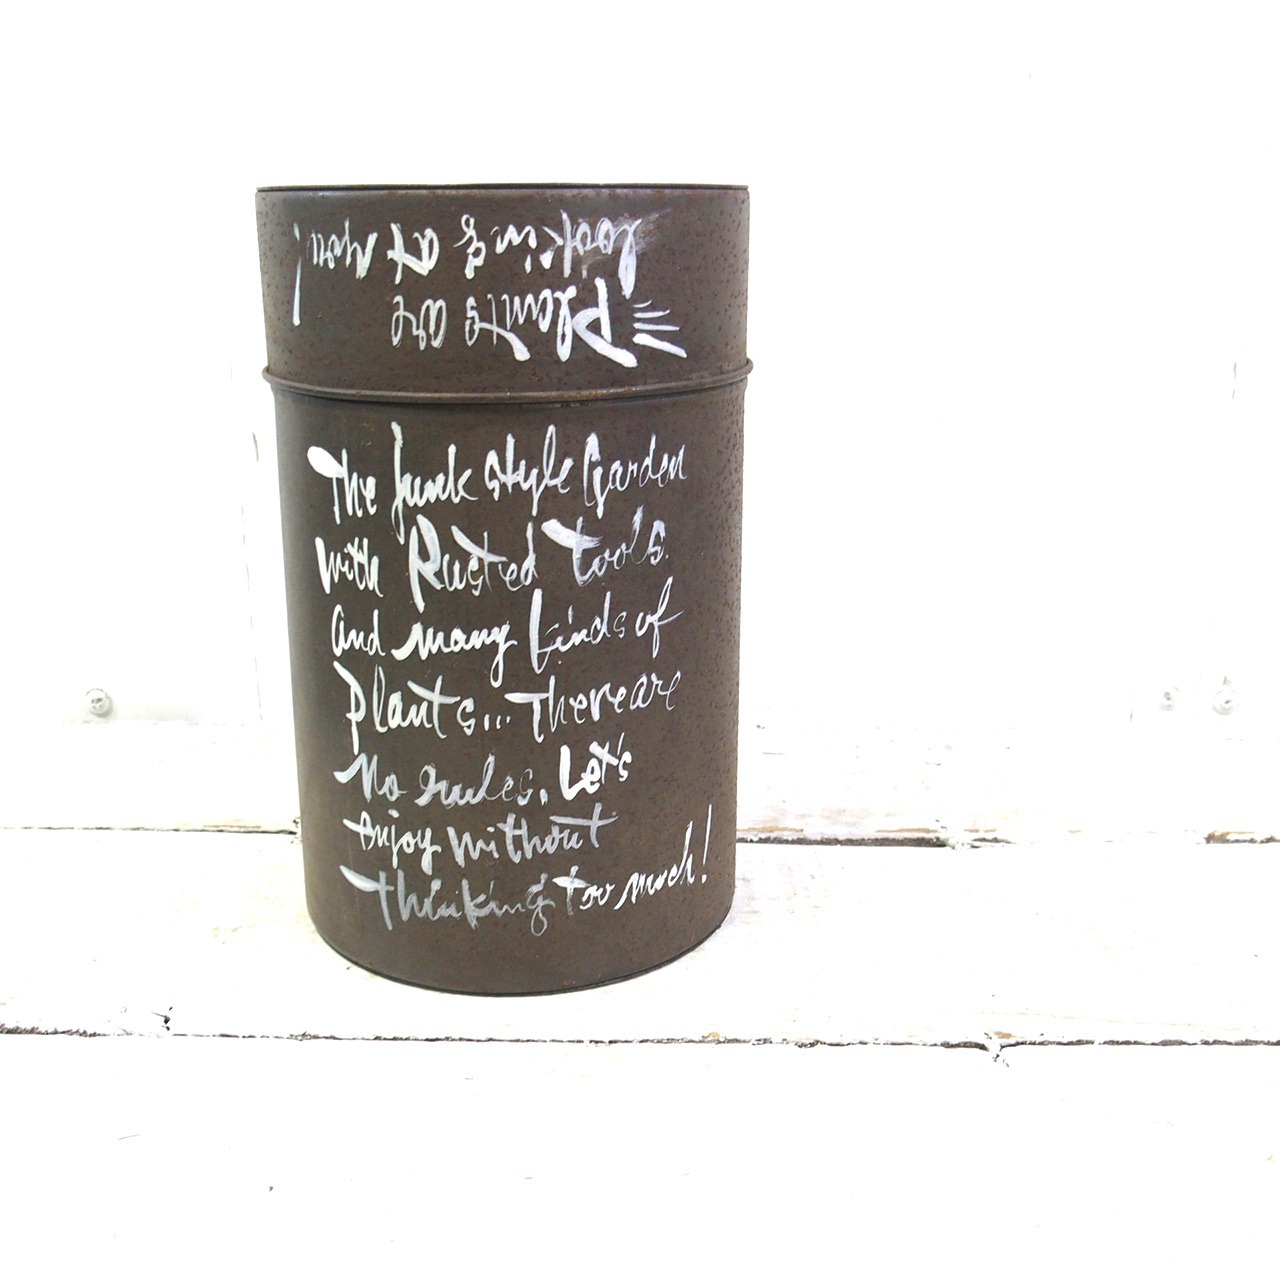 Plants are
looking at you!
The Junk style Garden
with Rusted tools
and many kinds of
Plants... There are
No rules. Let's
enjoy without
thinking too much!